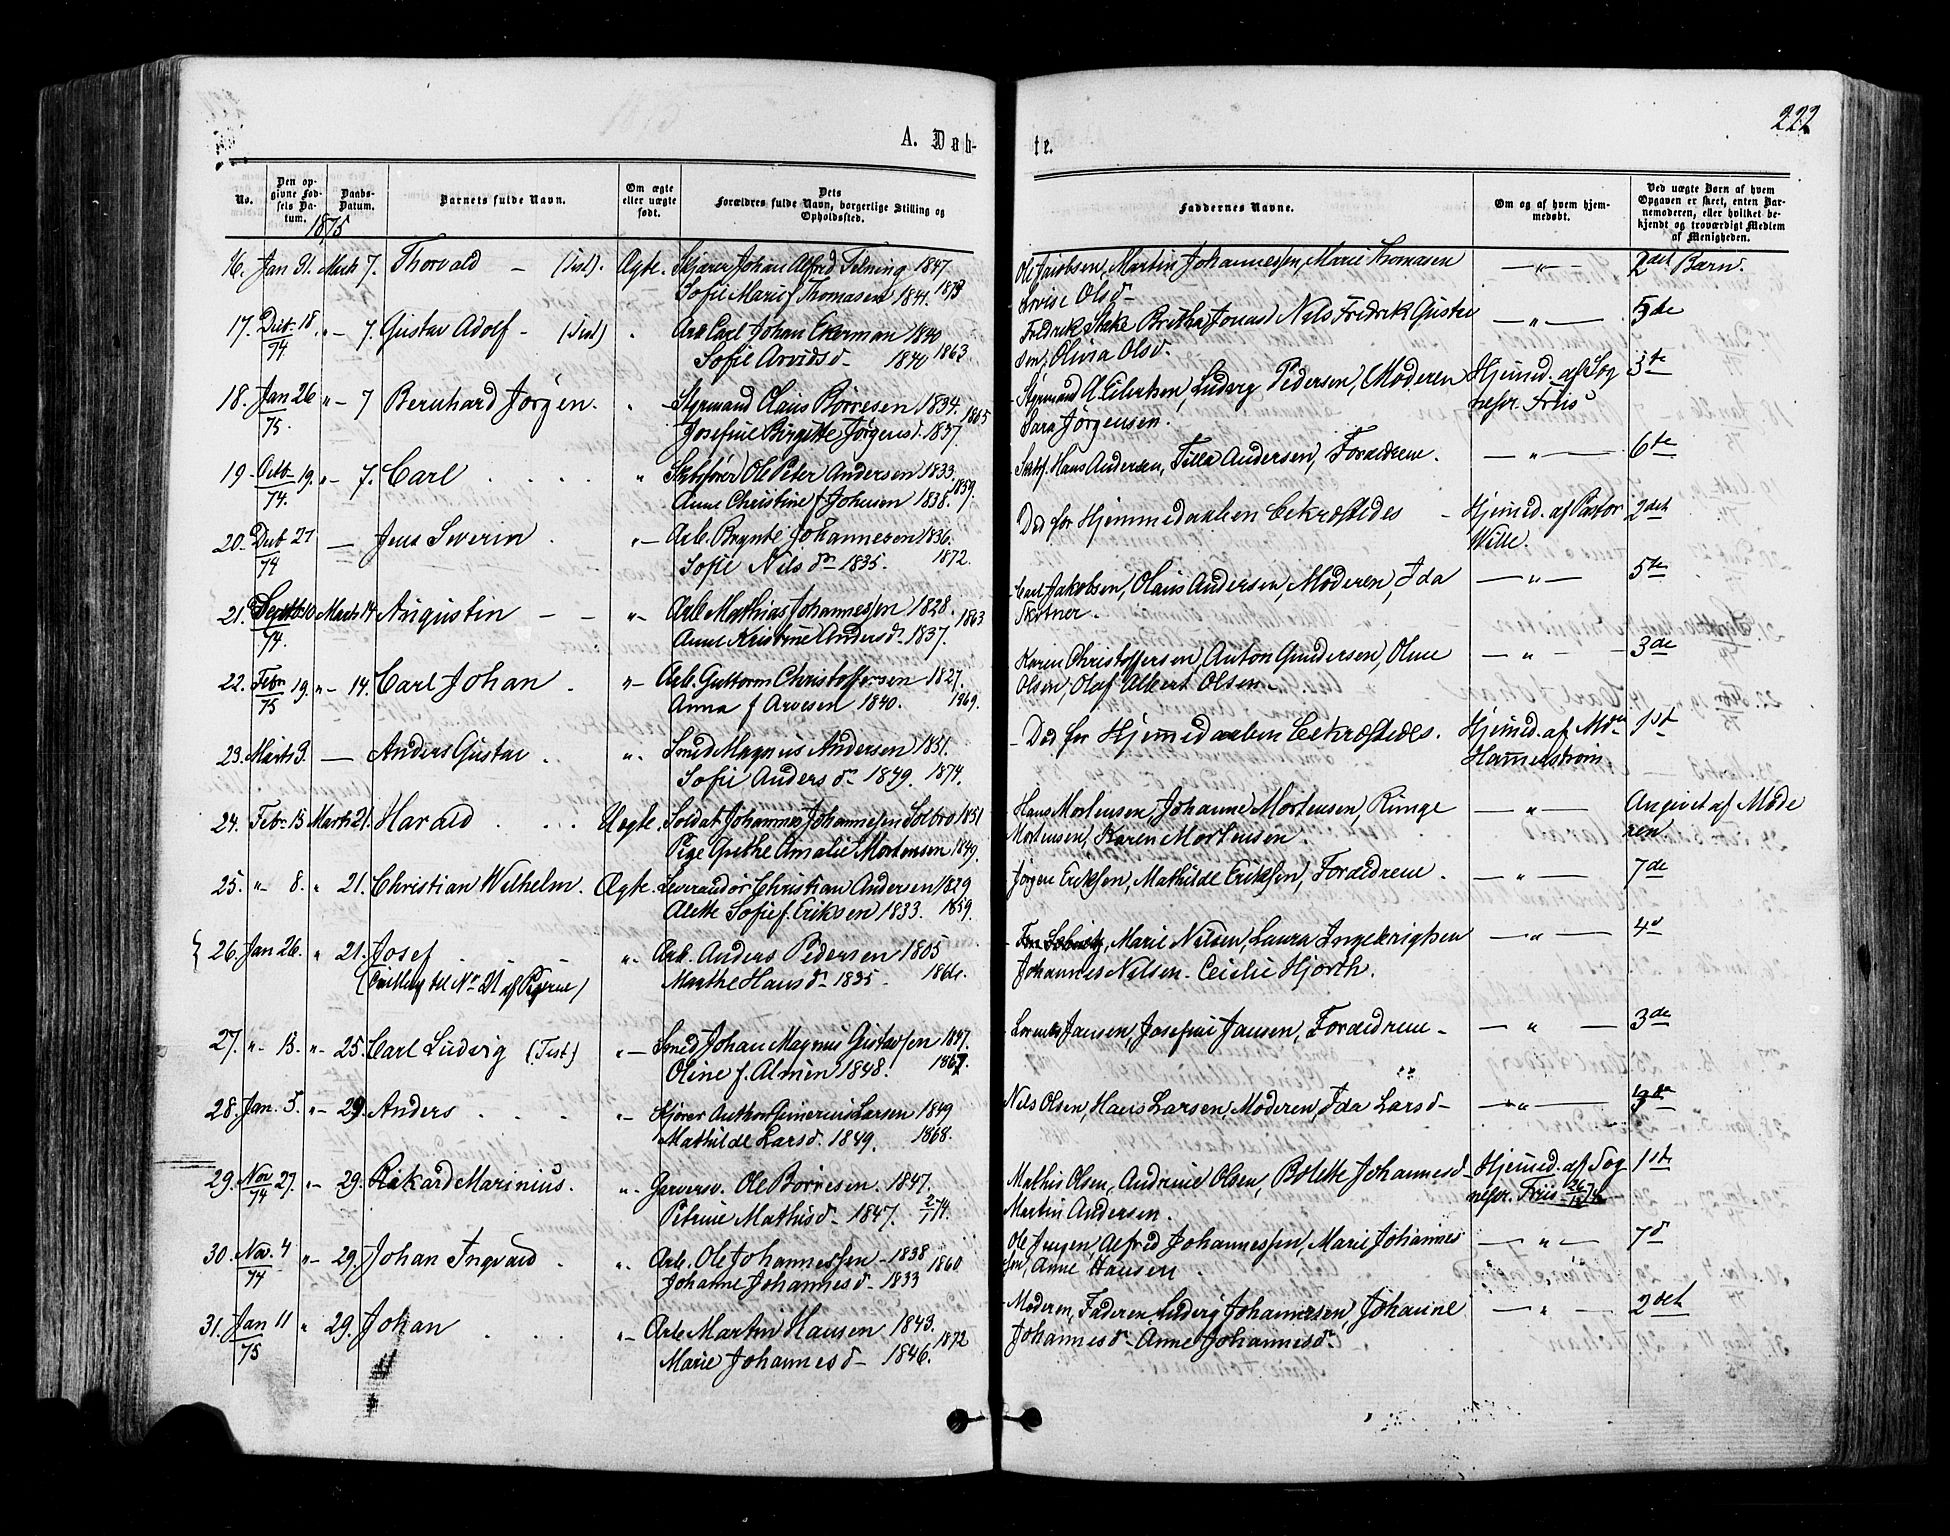 222
A. Døb-
te.
No.
Den op-
givne Fød-
sels Da-
tum.
Daabs-
Datum.
Barnets fulde Navn.
Om ægte
eller uægte
født.
Dets
Forældres fulde Navn, borgerlige Stilling og
Opholdssted.
Faddernes Navne.
Om og af hvem hjem-
medøbt.
Ved uægte Børn af hvem
Opgaven er skeet, enten Bar-
nemoderen, eller hvilket be-
kjendt og troværdigt Medlem
af Menigheden.
1875
16. Jan 31. Marts 7. Thorvald – Ægte. Skjærer Johan Alfred Telning 1847 Ole Jacobsen, Martin Johannessen, Marie Thomasen — „ — 2det Barn.
Sofie Marie f Thomasen 1841. 1873 Lovise Olsd–
17. Decb 18. „ – 7. Gustav Adolf – „ Arb Carl Johan Ekerman 1840 Fredrik Stake Britha Jonasd Nils Fredrik Gusta — „ — 5de
74 Sofie Arvidsd – 1840 1863 sen, Olivia Olsd.
18. Jan 26 „ – 7 Bernhard Jørgen. „ Styrmand Claus Børresen 1834. 1865 Styrmand A Eilertsen, Ludvig Pedersen, Moderen Hjemmd. af Sog 3de
75. Josefine Birgitte Jørgensd. 1837. Sara Jørgensen. nepr. Friis
19. Octb 19. „ – 7. Carl . . . . „ Skibsfører Ole Peter Andersen 1833. 1859. Skibsf. Hans Andersen, Tilla Andersen, Forældrene. — „ — 6te
74. Anne Christine f Johnsen 1838.
20. Decb 27 — Jens Severin . „ – Arb. Brynte Johannesen 1836. Død før Hjemmedaaben bekræftedes – Hjemmd. af Pastor 2det
74 Sofie Nilsdr 1835. 1872. Wille.
21. Septb 10 Marts 14 Augustin – – „ Arb Mathias Johannessen 1828. 1863 Carl Jakobsen, Olaus Andersen, Moderen, Ida — „ — 5te
74. Anne Kristine Andersdr 1837.
22. Febr 19. „ – 14. Carl Johan . „ – Arb. Guttorm Christoffersen 1827. Karen Christoffersen, Anton Gundersen, Oline — „ — 3de
75 Anna f Arvesen 1840. 1869. Olsen, Olaf Albert Olsen.
23. Marts 9. — Anders Gustav . „ Smed Magnus Andersen 1851. – Død før Hjemmedaaben bekræftedes. Hjemmd. af Mdm 1st
Sofie Andersdr 1849. 1874. Hammerstrøm
24. Febr. 15 Marts 21. Harald . . . Uegte. Soldat Johannes Johannesen Solbro 1851 Hans Mortensen, Johanne Mortensen, Ringe — „ — Angivet af Mode
Pige Grethe Amalie Mortensen 1849. Mortensen, Karen Mortensen. ren.
25. „ 8. „ 21. Christian Wilhelm. Ægte. Leverandør Christian Andersen 1829 Jørgen Eriksen, Mathilde Eriksen, Forældrene. — „ — 7de
Alette Sofie f. Eriksen 1833. 1859.
26. Jan 26. „ 21. Josef „ Arb. Anders Pedersen 1805 Marie Nilsen, Laura Ingebrigtsen — „ — 4d
(Tvilling til No 21 af Pigerne) Marthe Hansdr 1835 Johannes Nilsen. Cecilie Hjorth.
27. „ 13. „ 25. Carl Ludvig „ – Smed Johan Magnus Gustavsen 1847. Lorents Jansen, Josefine Jansen, Forældrene – — „ — 3de
Oline f. Almén 1848. 1867.
28. Jan. 5. „ 29 Anders . . . „ Kjører Anthon Severius Larsen 1849 Nils Olsen, Hans Larsen, Moderen, Ida Larsd – — „ —
Mathilde Larsd. 1849. 1868.
29. Nov 27. „ 29. Rikard Marinius. „ Garversv. Ole Børresen. 1847. Mathis Olsen, Andrine Olsen, Bolette Johannesd Hjemmd. af Sog 1ste
74 Petrine Mathisd – 1847. 2/1 74. Martin Andersen. nepr. Friis 26/12 74
30. Nov. 4 „ – 29. Johan Ingvald . „ Arb. Ole Johannessen 1838 1860 Ole Jensen, Alfred Johannessen, Marie Johannes — „ — 7d
74 Johanne Johannesd – 1833 sen, Anne Hansen
31. Jan 11 „ 29. Johan . . . „ – Arb Martin Hansen 1843. 1872 – Moderen, Faderen, Ludvig Johannesen, Johanne — „ — 2det
75 Marie Johannesd – 1846. Johannesd – Anne Johannesdr